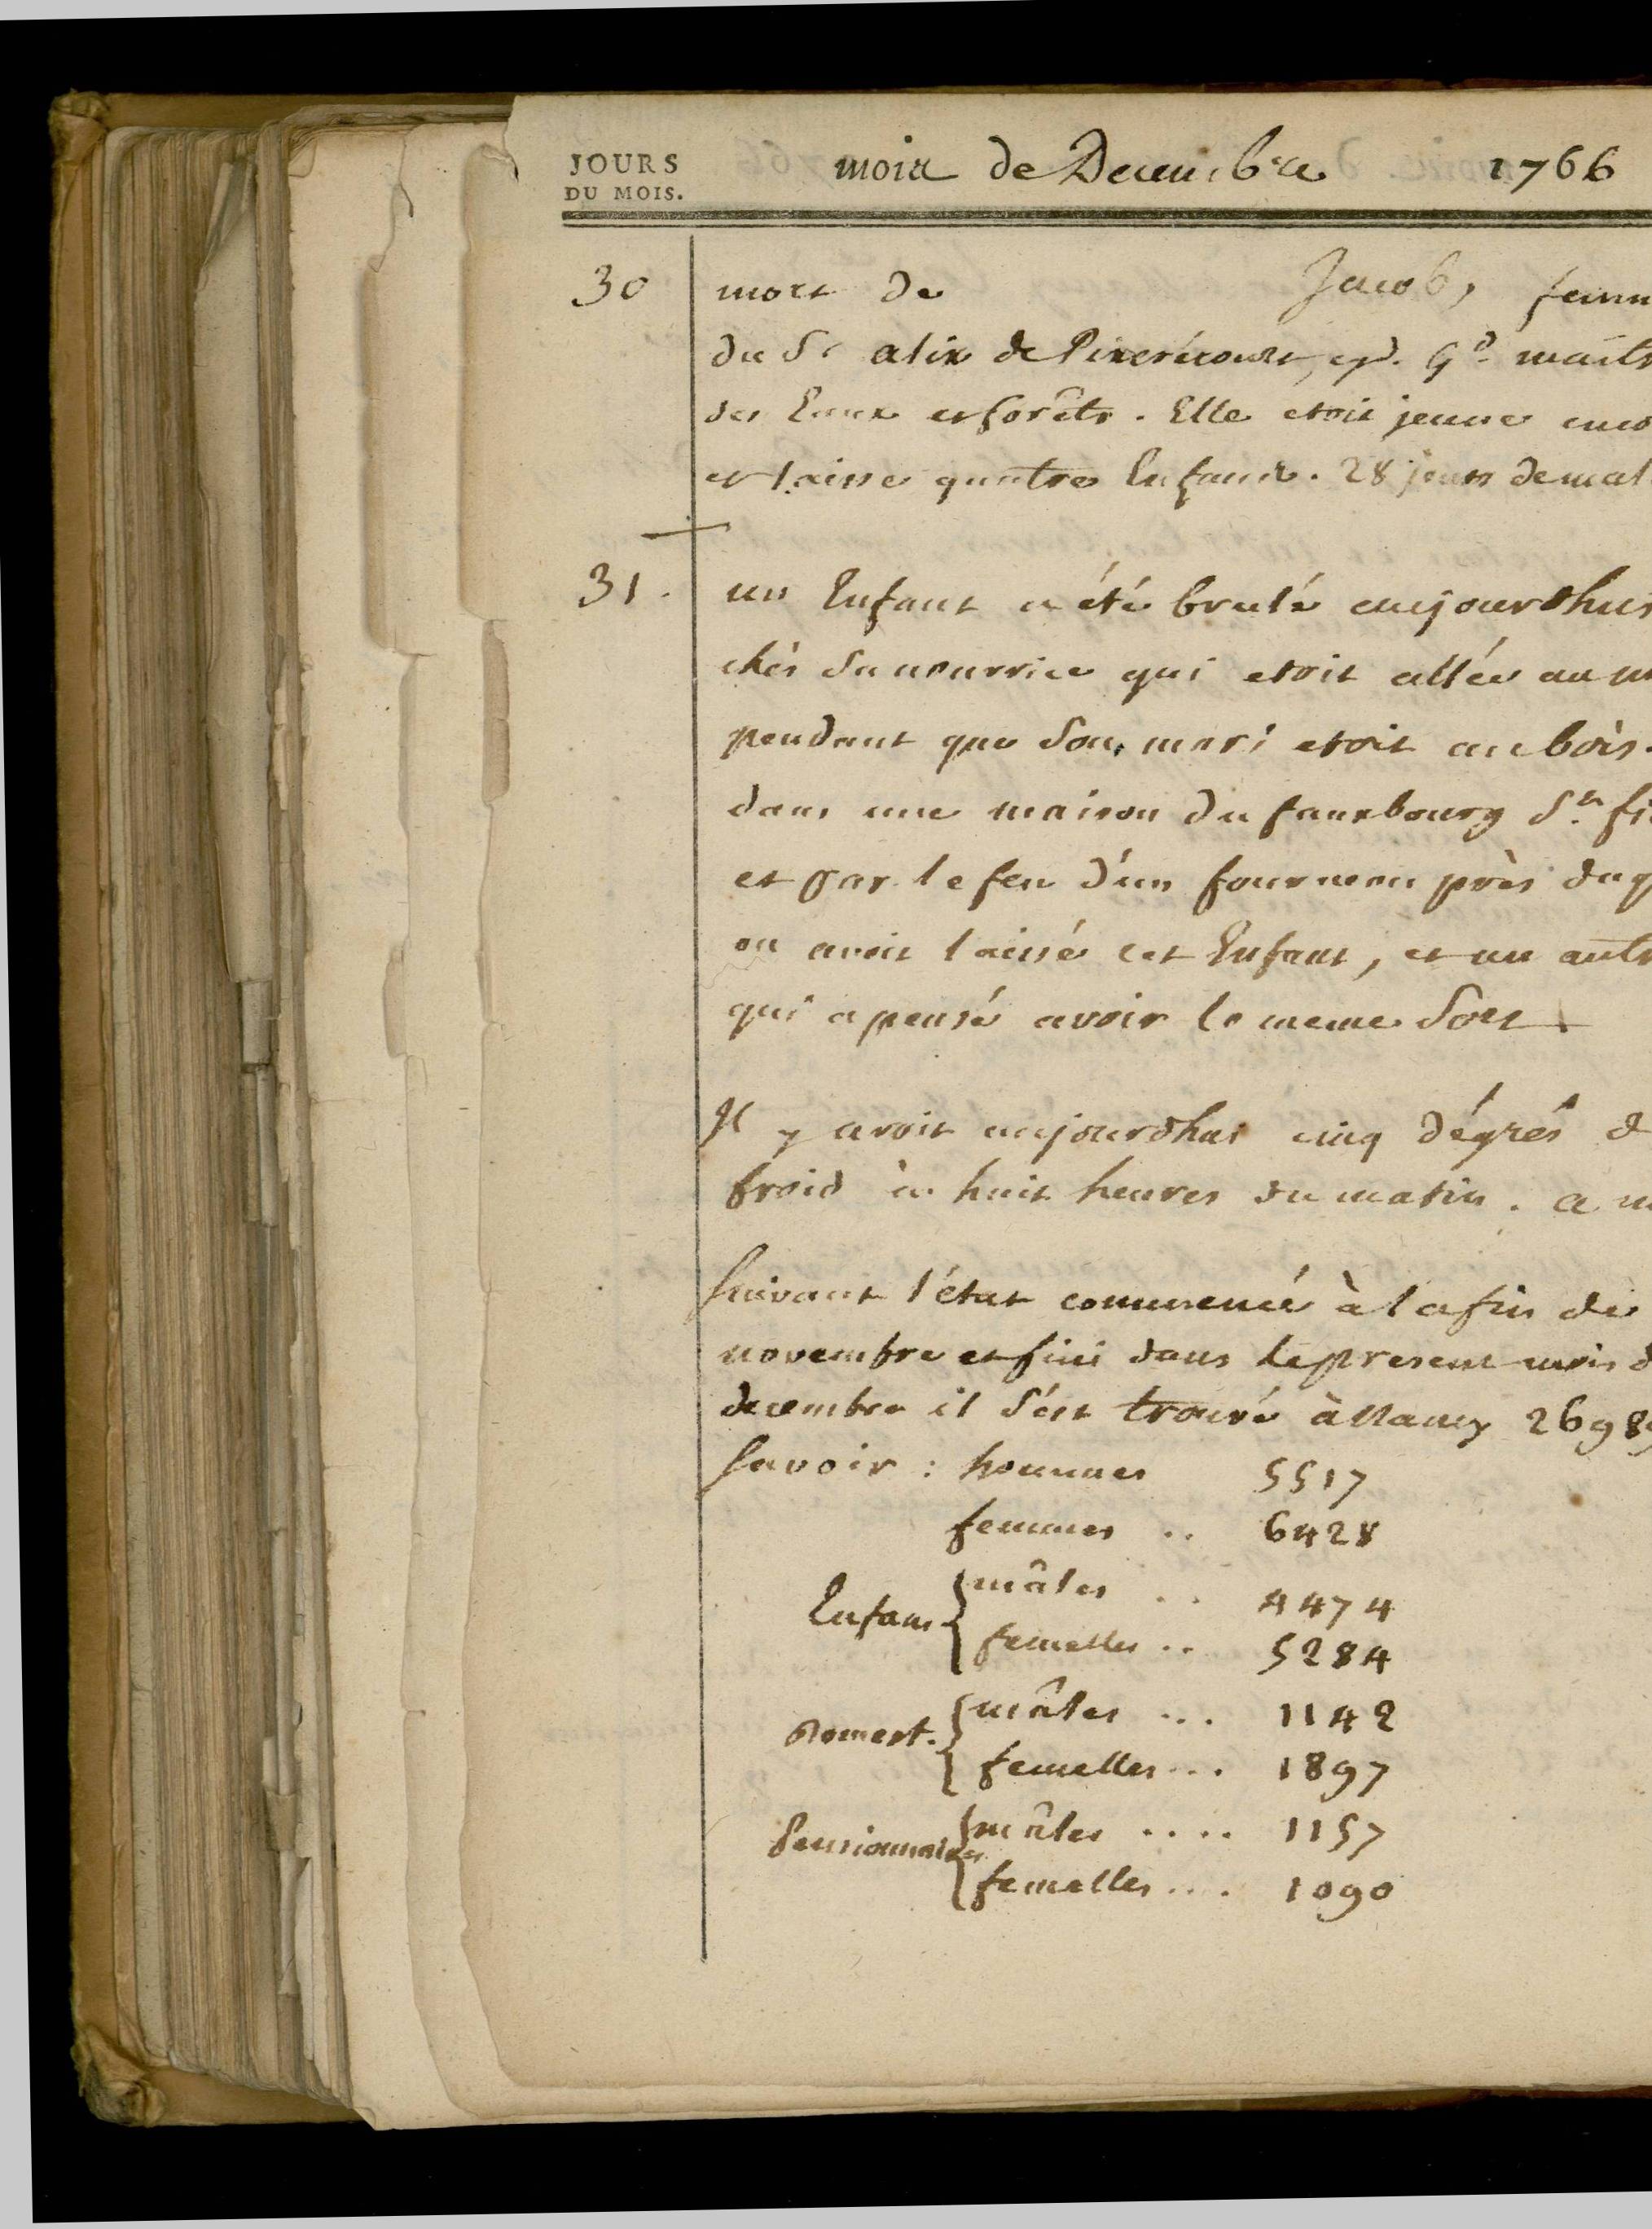 JOURS
DU MOIS.
mois de Decembre 1766
30 mort de Jacob, femm
du Sr alix de Pixerécourt, Gd. maitr
des Eaux et forêts. Elle etoit jeune enco
et laisse quatre Enfans. 28 jours de mal
31. un Enfant a été brulé aujourdhui
chés sa nourrice qui etoit allée au m
pendant que son mari etoit au bois.
dans une maison du fauxbourg St. fi
et par le feu d'un fourneau près duq
on avoit laissé cet Enfant, et un autr
qui a pensé avoir le meme sort
Il y avoit aujourdhui cinq dégrés d
froid à huit heures du matin. a m
Suivant l'état commencé à la fin de
novembre et fini dans le present mois d
decembre il s'est trouvé à Nancy 2698
Savoir : hommes 5517
femmes .. 6428
Enfans mâles .. 4474
femelles .. 5284
Domest. mâles ... 1142
femelles ... 1897
Pensionnaires mâles .... 1157
femelles .... 1090